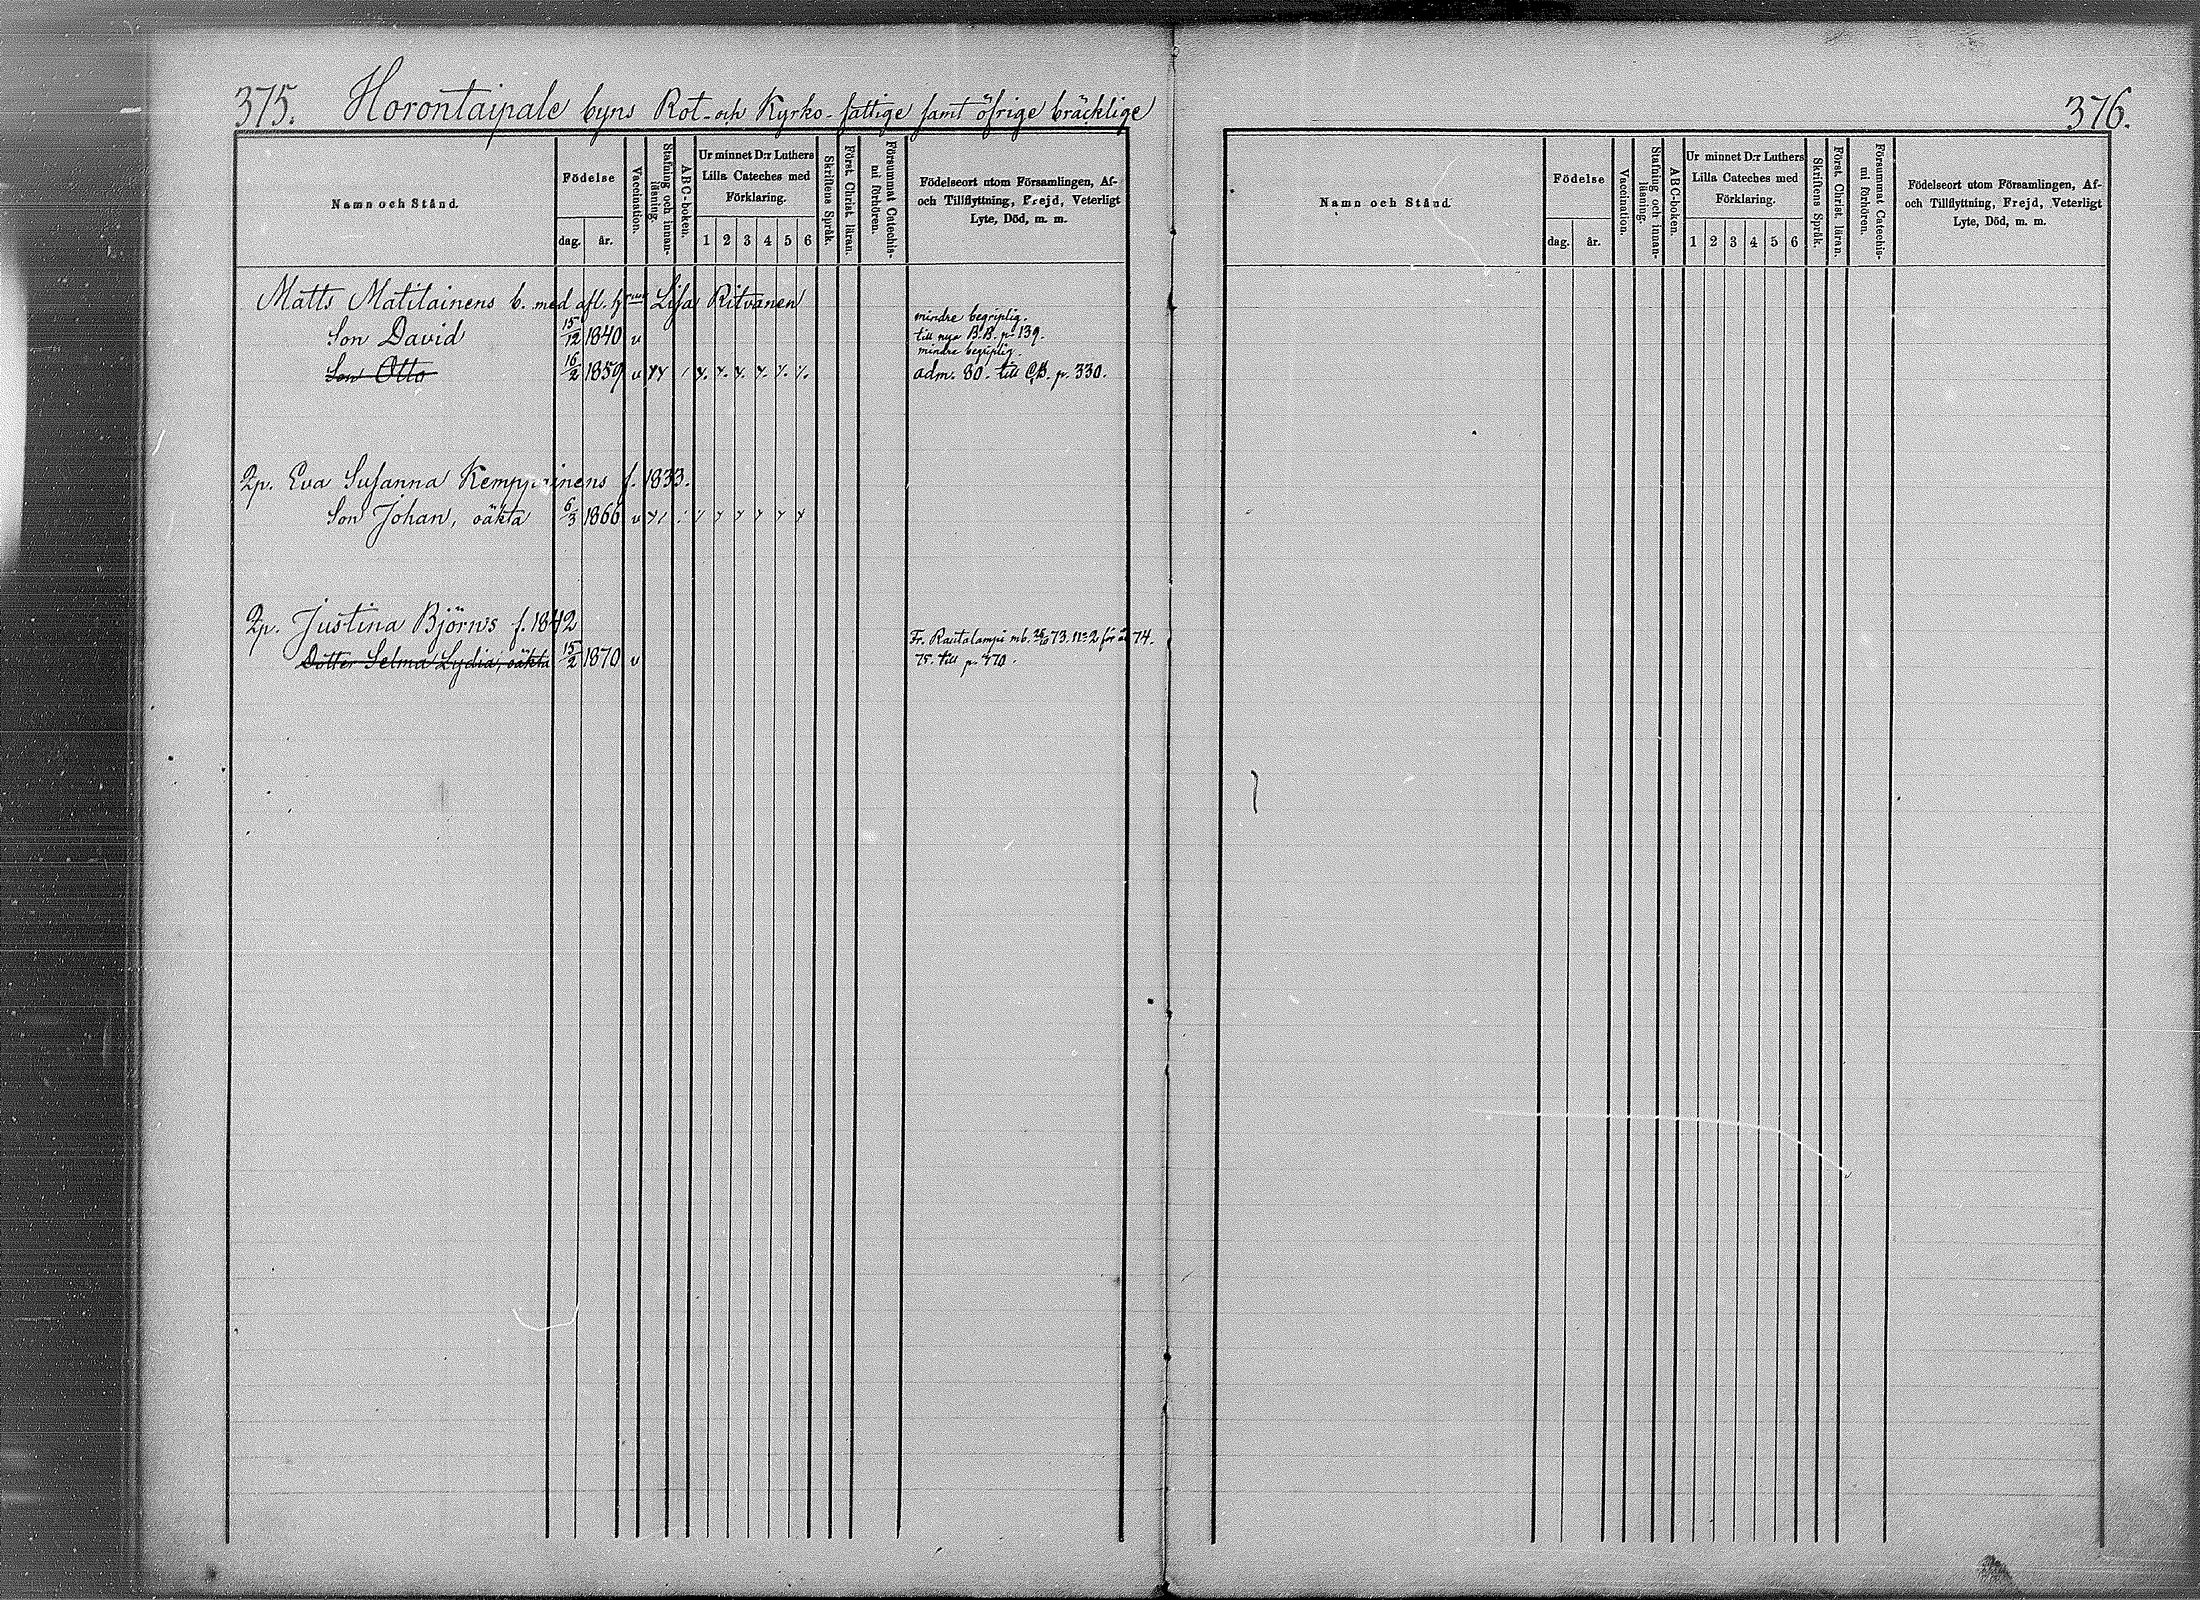 375. Horontaipale byns Rot- och Kyrko- fattige samt öfrige bräcklige
Namn och Stånd.
Födelse
dag. år.
Vaccination.
Stafning och innanläsning.
ABC-boken.
Ur minnet D:r Luthers
Lilla Cateches med
Förklaring.
1 2 3 4 5 6
Skriftens Språk.
Först. Christ. läran.
Försummat Catechismi förhören.
Födelseort utom Församlingen, Af-
och Tillflyttning, Frejd, Veterligt
Lyte, Död, m. m.
Matts Matilainens b. med afl. hrun Lisa Ritvanen
mindre begriplig.
Son David 15/12 1840 v till nya B.B. p. 139.
mindre begriplig.
Son Otto 16/2 1859 v adm. 80. till C.B. p. 330.
Qp. Eva Susanna Kemppainens f. 1833.
Son Johan, oäkta 6/3 1866 v
Qp. Justina Björns f. 1842
Fr. Rautalampi mb. 73. n:o 2 för å 74.
Dotter Selma Lydia, oäkta 15/2 1870 v 75. till p. 370.
376.
Namn och Stånd
Födelse
dag. år.
Vaccination.
Stafning och innanläsning.
ABC-boken.
Ur minnet D:r Luthers
Lilla Cateches med
Förklaring.
1 2 3 4 5 6
Skriftens Språk.
Först. Christ. läran.
Försummat Catechismi förhören.
Födelseort utom Församlingen, Af-
och Tillflyttning, Frejd, Veterligt
Lyte, Död, m. m.